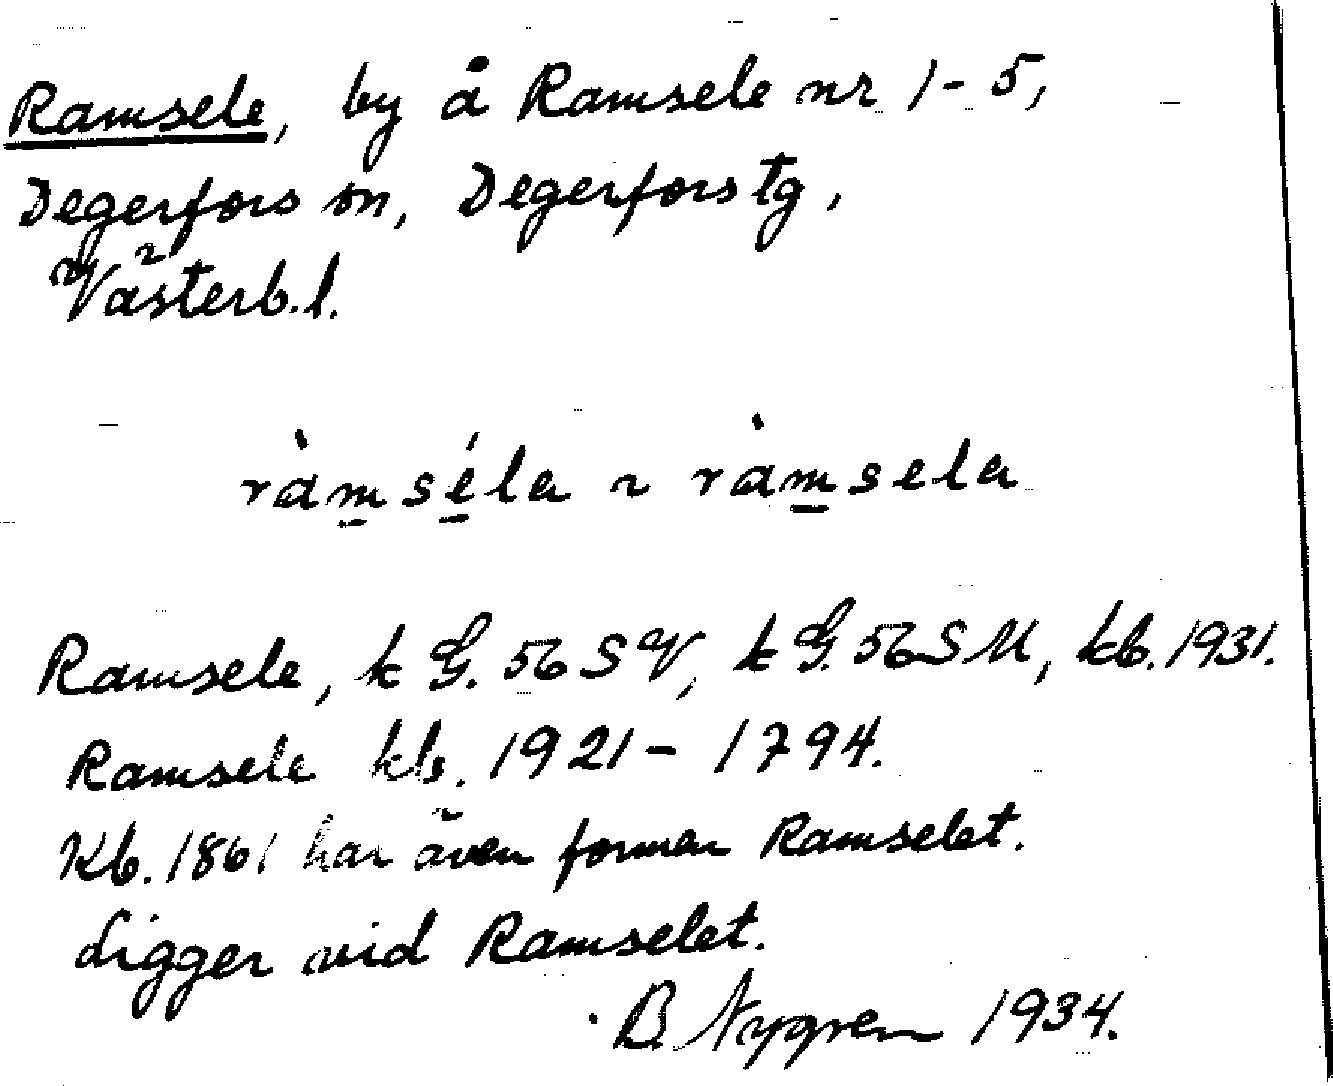 Ramsele, by å Ramsele nr 1-5,
Degerfors sn, Degerfors tg,
Västerb.l.
ràmséla ~ ràmsela
Ramsele, k G. 56 SV, k G. 56 SU, kb. 1931.
Ramsele kb. 1921 - 1794.
Kb. 1861 har även formen Ramselet.
Ligger vid Ramselet.
B. Nygren 1934.